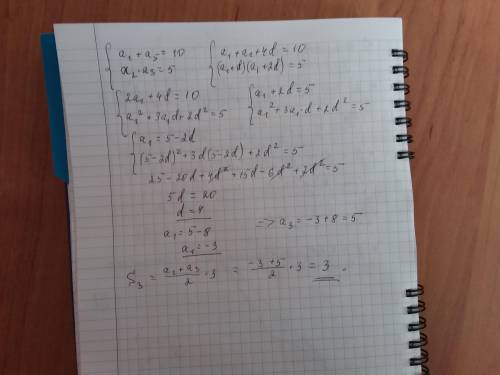 {a₁ + a₅ = 10 {a₁ + a₁ + 4d = 10
a₂·a₃ = 5 (a₁+d)(a₁+2d) = 5
{2a₁ + 4d = 10 {a₁ + 2d = 5
a₁² + 3a₁d + 2d² = 5 a₁² + 3a₁·d + 2d² = 5
{a₁ = 5 - 2d
(5-2d)² + 3d(5-2d) + 2d² = 5
25 - 20d + 4d² + 15d - 6d² + 2d² = 5
5d = 20
d = 4
a₁ = 5 - 8 => a₃ = -3 + 8 = 5
a₁ = -3
S₃ = a₁ + a₃ / 2 · 3 = -3 + 5 / 2 · 3 = 3.